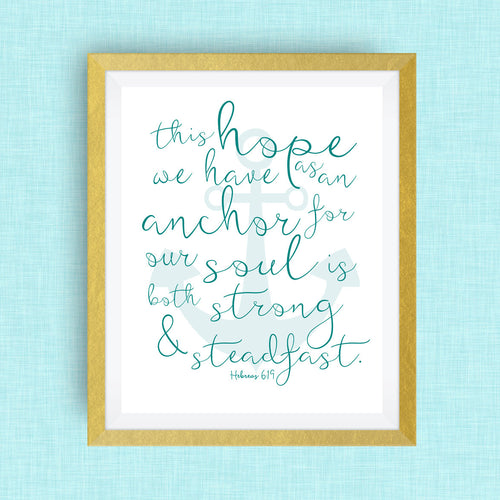 this hope
we have as an
anchor for
our soul is
both strong
& steadfast.
Hebrews 6:19